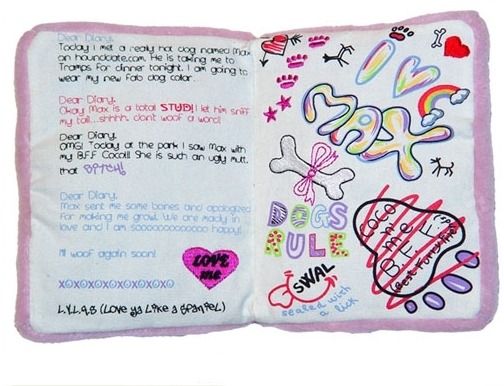 Dear Diary,
Today I met a really hot dog named Max
on hounddate.com. He is taking me to
Tramps for dinner tonight. I am going to
wear my new Fab dog collar.
Dear Diary,
Okay Max is a total STUD! I let him sniff
my tail...shhhh, dont woof a word!
Dear Diary,
OMG! Today at the park I saw Max with
my B.F.F Coco!!! She is such an ugly mutt,
that B*TCH!
Dear Diary,
Max sent me some bones and apologized
for making me growl. We are madly in
love and I am soooooooooooooo happy!
I'll woof again soon!
LOVE
me
XOXOXOXOXOXOXOXO
L.Y.L.A.S (Love ya Like a Spaniel)
I
MAX
DOGS
RULE
COCO
n
me
B.F.F
(Best Furry
SWAL
sealed with
a lick